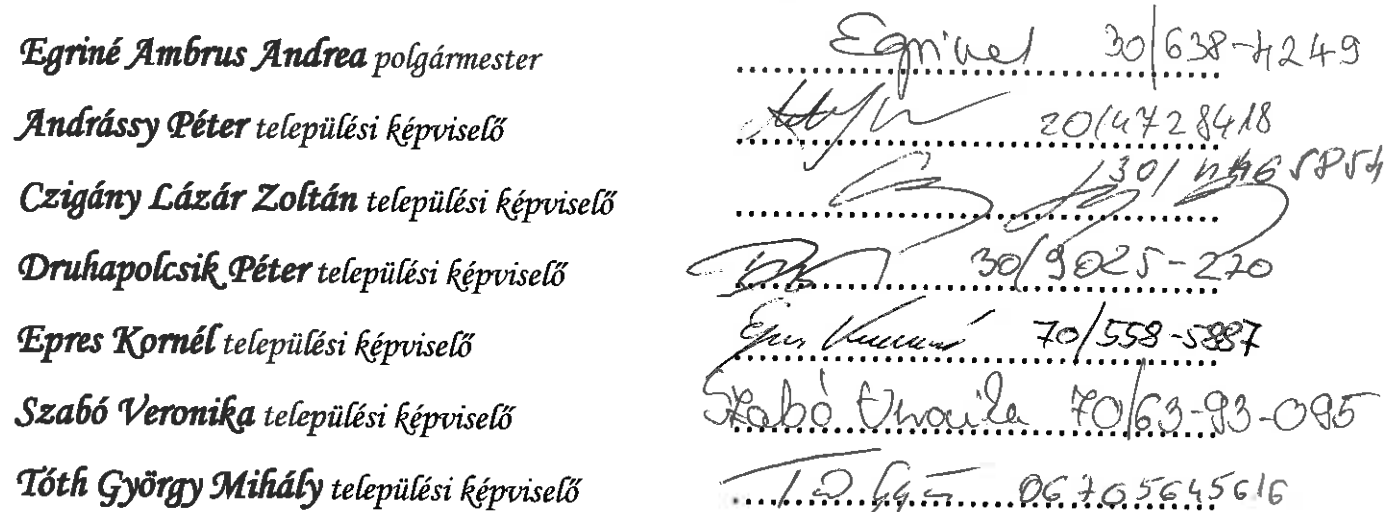 Egriné Ambrus Andrea polgármester Egriné 30/638-4249
Andrássy Péter települési képviselő 20/4728418
Czigány Lázár Zoltán települési képviselő 30/
Druhapolcsik Péter települési képviselő 30/9025-270
Epres Kornél települési képviselő Epres Kornél 70/558-5887
Szabó Veronika települési képviselő Szabó Veronika 70/63-93-095
Tóth György Mihály települési képviselő 06705645616